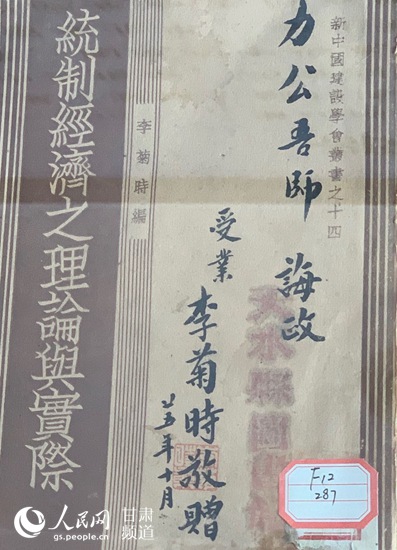 新中國建設學會叢書之十四
力公吾師 誨政
受業 李菊時敬贈
廿五年十月
李菊時編
統制經濟之理論與實際
F12
287
人民网 甘肃频道
gs.people.cn